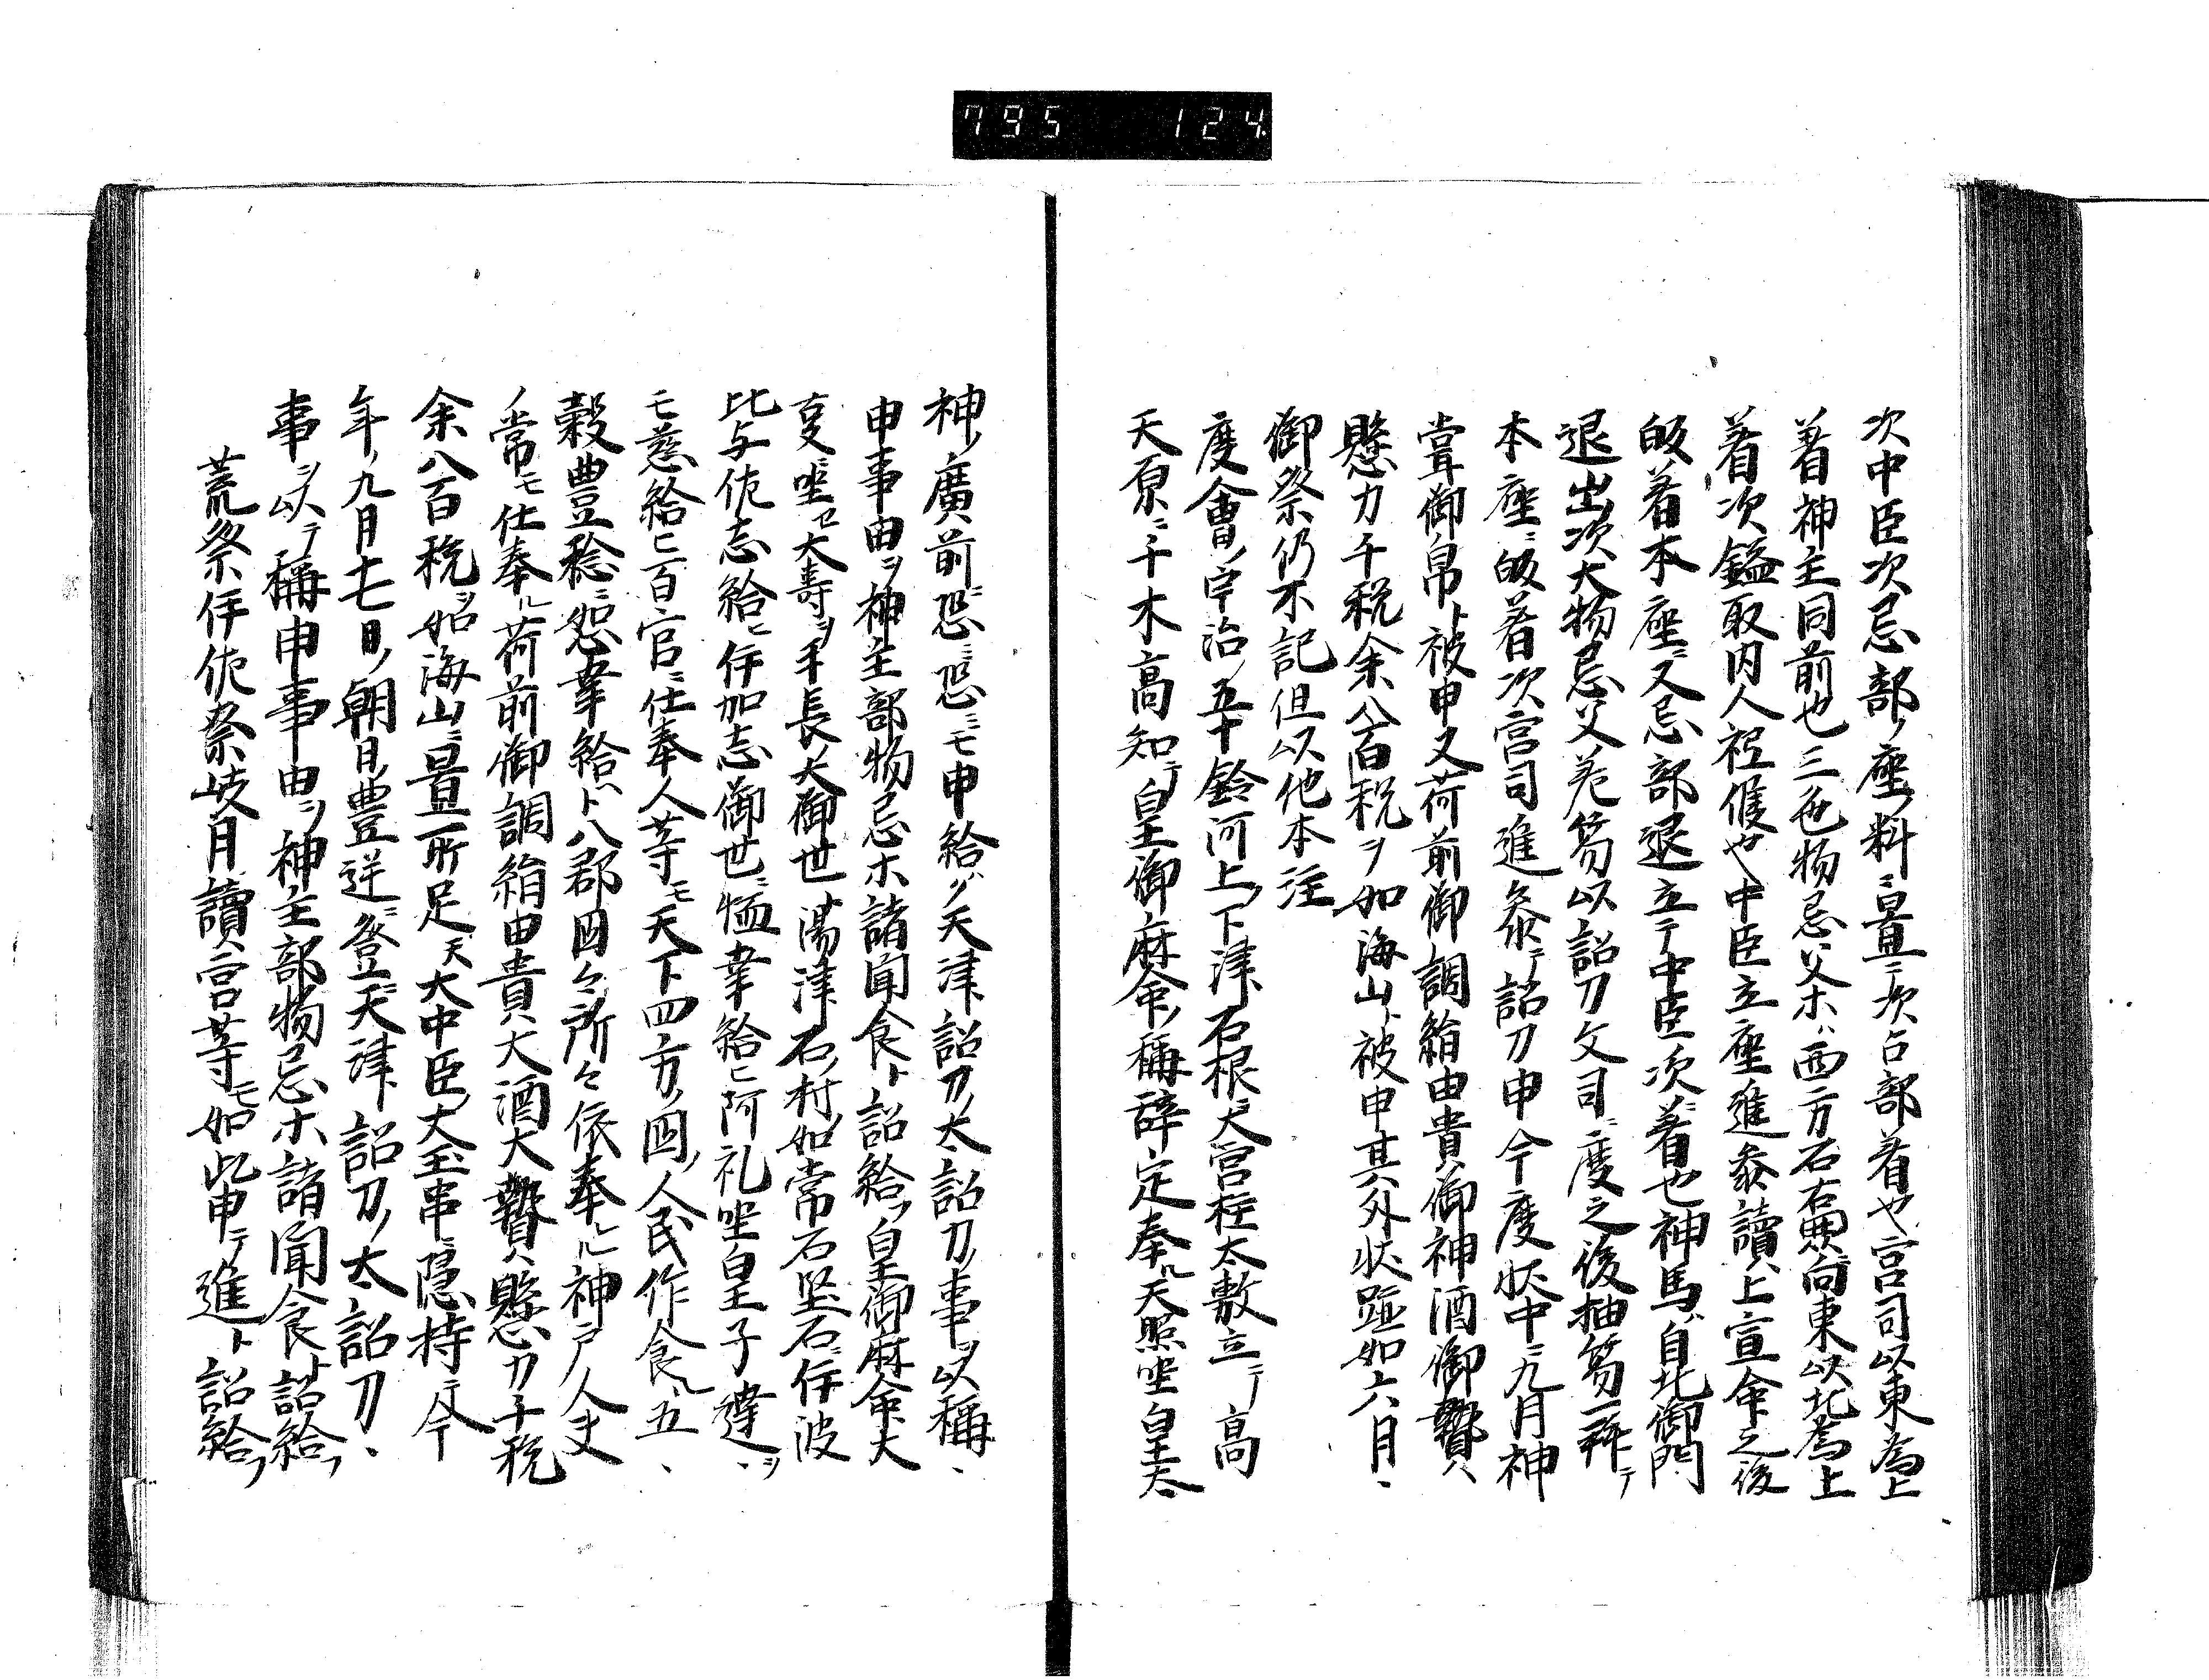 795 124
次中臣次忌部ノ座ノ料ニ畳ニ次占部着也宮司以東為上
着神主同前也三色物忌父ホハ西方石右㒵向東以北為上
着次鎰取内人祗候也中臣立座進参讀上宣命之後
皈着本座ニ又忌部退立テ中臣次ニ着也神馬自北御門
退出次大物忌父差笏以詔刀文司ニ度之後抽笏一拜テ
本座ニ皈着次宮司進参テ詔刀申今度状中ニ九月神
嘗御帛ト被申又荷前御調絹由貴御神酒御贄
懸力千税余八百税ヲ如海山ト被申其外状竝如六月ヽ
御祭仍不記但以他本注
度會ノ宇治ノ五十鈴河上ノ下津石根ニ大宮柱太敷立テ高
天原ニ千木高知テ皇御麻命ノ稱辞定奉ル天照坐皇太
神ノ廣前ニ恐ミ恐ミモ申給ハク天津詔刀ノ太詔刀ノ事ヲ以稱ヽ
申事由ヲ神主部物忌ホ諸聞食ト詔給フ皇御麻命大
㕝坐ヲ大壽ヲ手長大御世湯津石村ノ如常石堅石ニ伊波
比与佐志給ヒ伊加志御世ニ恤幸給ヒ阿礼坐皇子達ヽヲ
モ慈給ヒ百官ニ仕奉人等モ天下四方ノ國ノ人民作食ル五ヽ
穀豊稔ニ如恐幸給ハト八郡國々所々依奉ル神戸ノ人夫
ノ常モ仕奉ル荷前御調絹由貴大酒大贄懸力千税
余八百税ヲ如海山ニ置所足天大中臣太玉串ニ隠持テ今
年ノ九月十七日ノ朝日ノ豊逆登ニ天津詔刀ノ太詔刀ヽ
事ヲ以テ稱申事由ヲ神主部物忌ホ諸聞食ト詔給フ
荒祭伊佐奈岐月讀宮等モ如此申テ進ト詔給フ